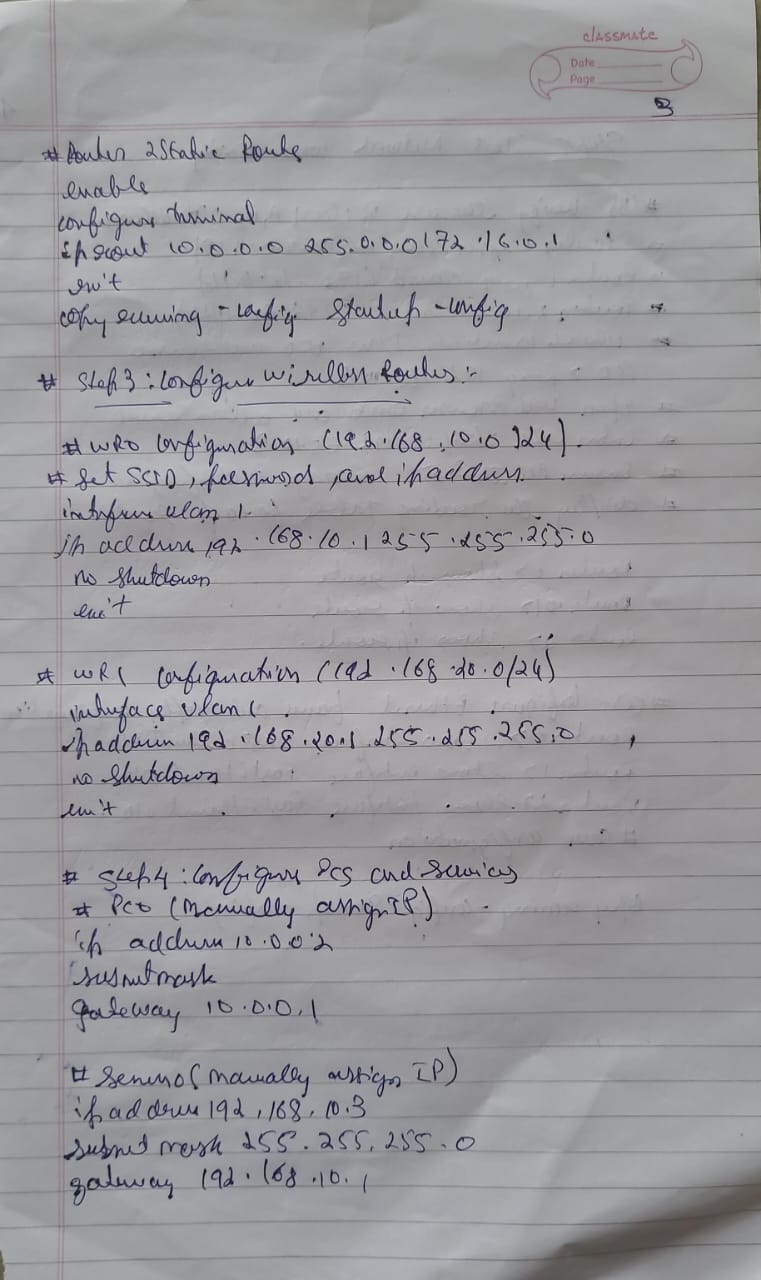 classmate
Date
Page
3
# Router 2 Static Route
enable
configure terminal
ip rout 10.0.0.0 255.0.0.0 172.16.0.1
exit
copy running - config startup - config
# Step 3 : Configure Wireless Routes :-
# WR0 Configuration (192.168.10.0/24)
# Set SSID, password, and ip address
interface vlan 1
ip address 192.168.10.1 255.255.255.0
no shutdown
exit
* WR1 Configuration (192.168.20.0/24)
interface vlan 1
ip address 192.168.20.1 255.255.255.0
no shutdown
exit
# Step 4 : Configure PCs and Services
# PC0 (Manually assign IP)
ip address 10.0.0.2
subnet mask
gateway 10.0.0.1
# Server0 (manually assign IP)
ip address 192.168.10.3
subnet mask 255.255.255.0
gateway 192.168.10.1